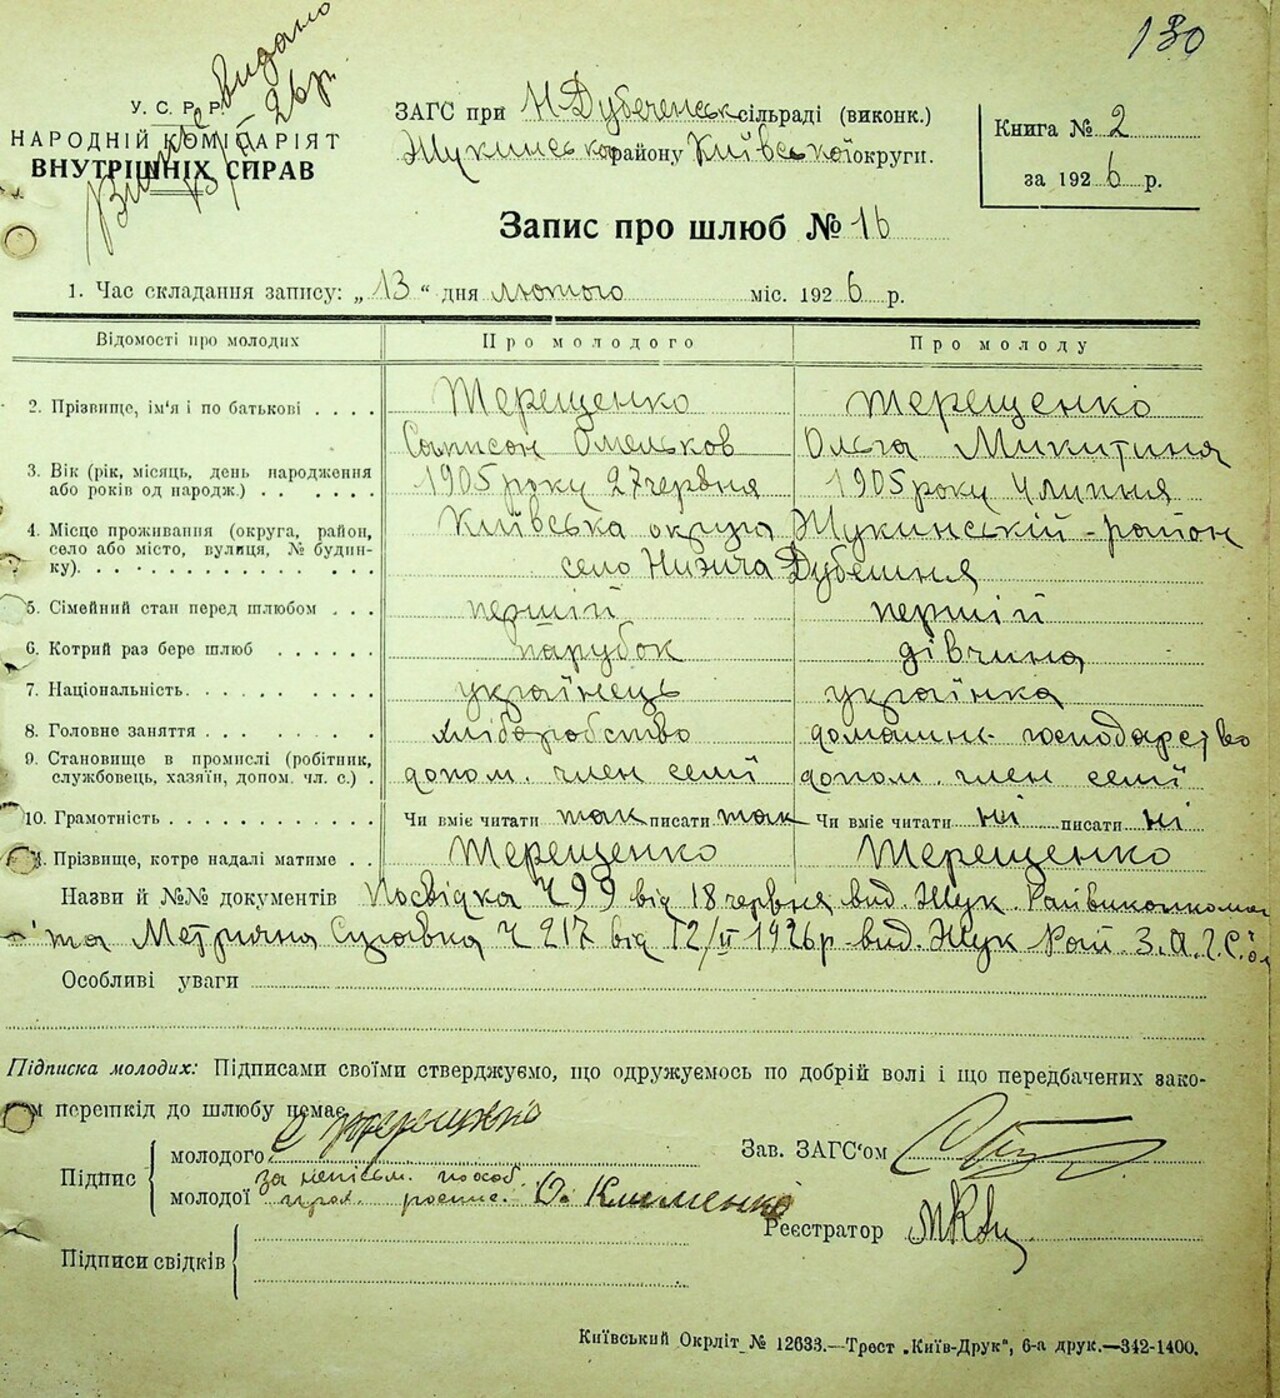 130
Виписе видано
13/II 26 р.
У. С. Р. Р.
НАРОДНІЙ КОМІСАРІЯТ
ВНУТРІШНІХ СПРАВ
ЗАГС при Н-Дубеченськ сільраді (виконк.)
Жукинсько району Київської округи.
Книга № 2
за 1926 р.
Запис про шлюб № 16
1. Час складання запису: „13“ дня лютого міс. 1926 р.
Відомості про молодих Про молодого Про молоду
2. Прізвище, ім'я і по батькові . . . . Терещенко Терещенко
Сампсон Омельков Ольга Микитина
3. Вік (рік, місяць, день народження
або років од народж.) . . . . . . 1905 року 27 червня 1905 року 4 липня
4. Місце проживання (округа, район,
село або місто, вулиця, № будин-
ку). . . . . . . . . . . . . . . Київська округа Жукинській-район
село Нижча Дубешня
5. Сімейний стан перед шлюбом . . . першій першій
6. Котрий раз бере шлюб . . . . . . парубок дівчина
7. Національність. . . . . . . . . українець українка
8. Головне заняття . . . . . . . . хліборобство домашнє господарство
9. Становище в промислі (робітник,
службовець, хазяїн, допом. чл. с.) . допом. член семії допом. член семії
10. Грамотність . . . . . . . . . . . . Чи вміє читати так писати так Чи вміє читати ні писати ні
11. Прізвище, котре надалі матиме . . Терещенко Терещенко
Назви й №№ документів Посвідка Ч 99 від 18 червня вид. Жук. Райвиконкома
та Метрична Ч 217 від 12/II 1926 р. вид. Жук Рай. З.А.Г.С.
Особливі уваги
Підписка молодих: Підписами своїми стверджуємо, що одружуємось по добрій волі і що передбачених зако-
ном перешкід до шлюбу немає
Підпис
молодого С Терещенко
молодої за непісьм. по особ.
прох. роспис. Клименко
Зав. ЗАГС'ом
Реєстратор
Підписи свідків
Київський Окрліт № 12633.—Трест „Київ-Друк“, 6-а друк.—342-1400.